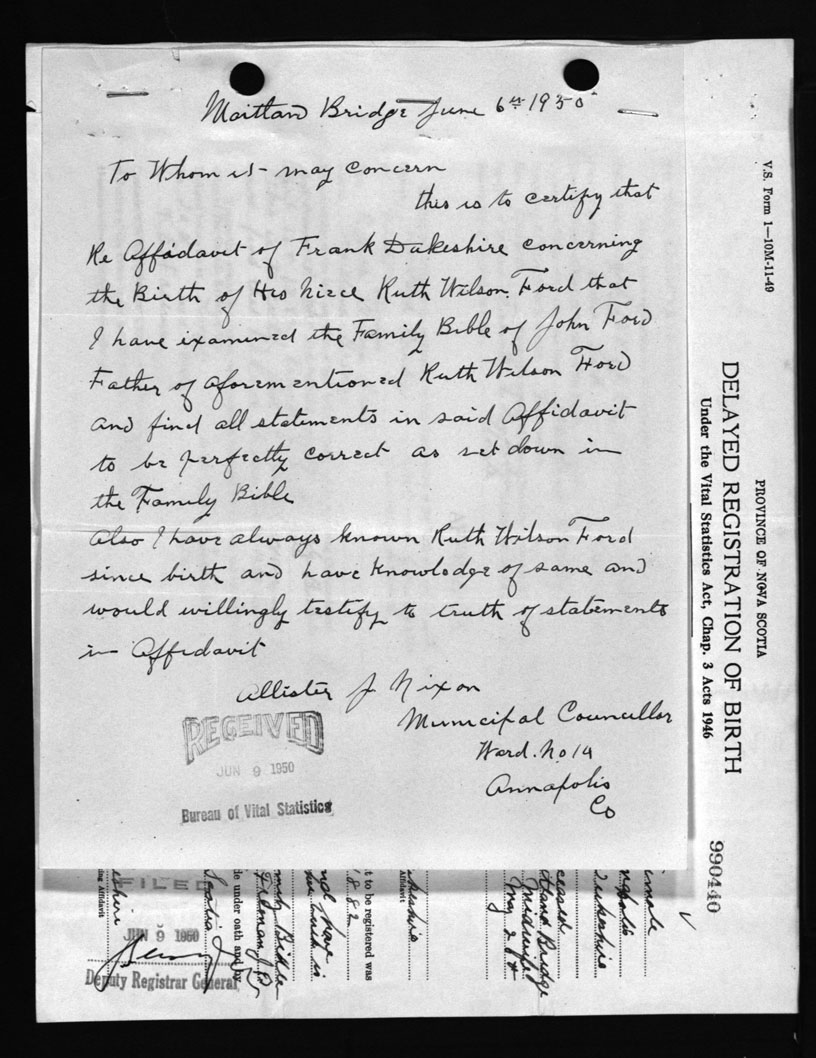 Maitland Bridge June 6th 1950
To Whom it may concern
this is to certify that
Re Affadavit of Frank Dukeshire concerning
the Birth of His Niece Ruth Wilson Ford that
I have examined the Family Bible of John Ford
Father of aforementioned Ruth Wilson Ford
and find all statements in said Affidavit
to be perfectly correct as set down in
the Family Bible
also I have always known Ruth Wilson Ford
since birth and have knowledge of same and
would willingly testify to truth of statements
in Affidavit
Allister J Nixon
Municipal Councillor
Ward. No 14
Annapolis
Co
RECEIVED
JUN 9 1950
Bureau of Vital Statistics
V.S. Form 1—10M-11-49
PROVINCE OF NOVA SCOTIA
DELAYED REGISTRATION OF BIRTH
Under the Vital Statistics Act, Chap. 3 Acts 1946
990440
ceased
Bridge
Midwife
May
Affidavit
t to be registered was
1882
de under oath and by
Scotia
ing Affidavit
FILED
JUN 9 1950
Deputy Registrar General